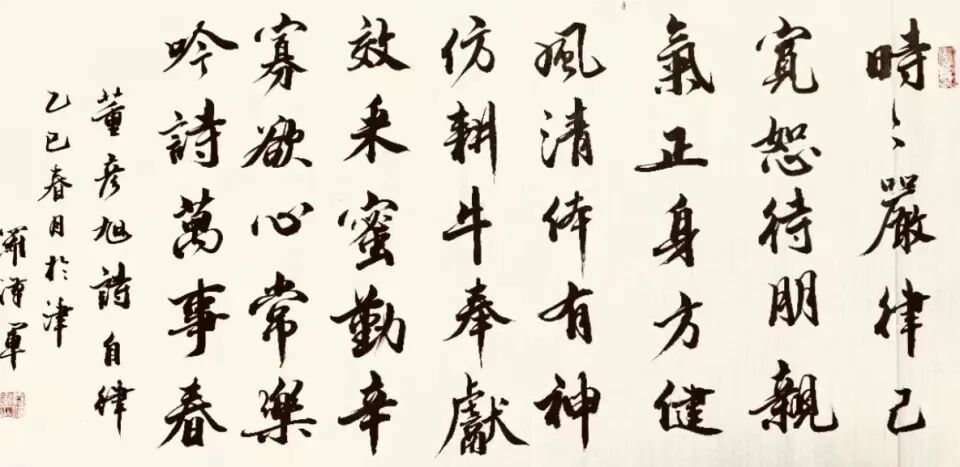 時々嚴律己
寬恕待朋親
氣正身方健
風清体有神
仿耕牛奉獻
效采蜜勤辛
寡欲心常樂
吟詩萬事春
董彦旭詩自律
乙巳春月於津